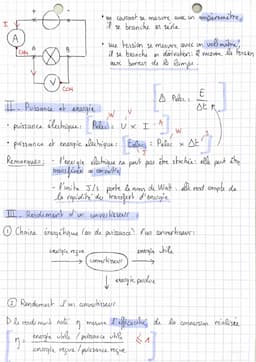 • un courant se mesure avec un ampèremètre,
il se branche en série
I
A
COM
B
V
COM
• une tension se mesure avec un voltmètre,
il se branche en dérivation : il mesure la tension
aux bornes de la lampe.
⚠ Pélec = E / Δt
II - Puissance et énergie
W V A
• puissance électrique : Pélec = U × I
• puissance et énergie électrique : Eélec = Pélec × Δt
Remarques : - l'énergie électrique ne peut pas être stockée : elle peut être
transférée ou convertie
- l'unité J/s porte le nom de Watt. elle rend compte de
la rapidité du transfert d'énergie
III - Rendement d'un convertisseur
① Chaîne énergétique (ou de puissance) d'un convertisseur :
énergie reçue
énergie utile
convertisseur
énergie perdue
② Rendement d'un convertisseur
le rendement noté η mesure l'efficacité de la conversion réalisée
η = énergie utile / puissance utile ≤ 1
énergie reçue / puissance reçue